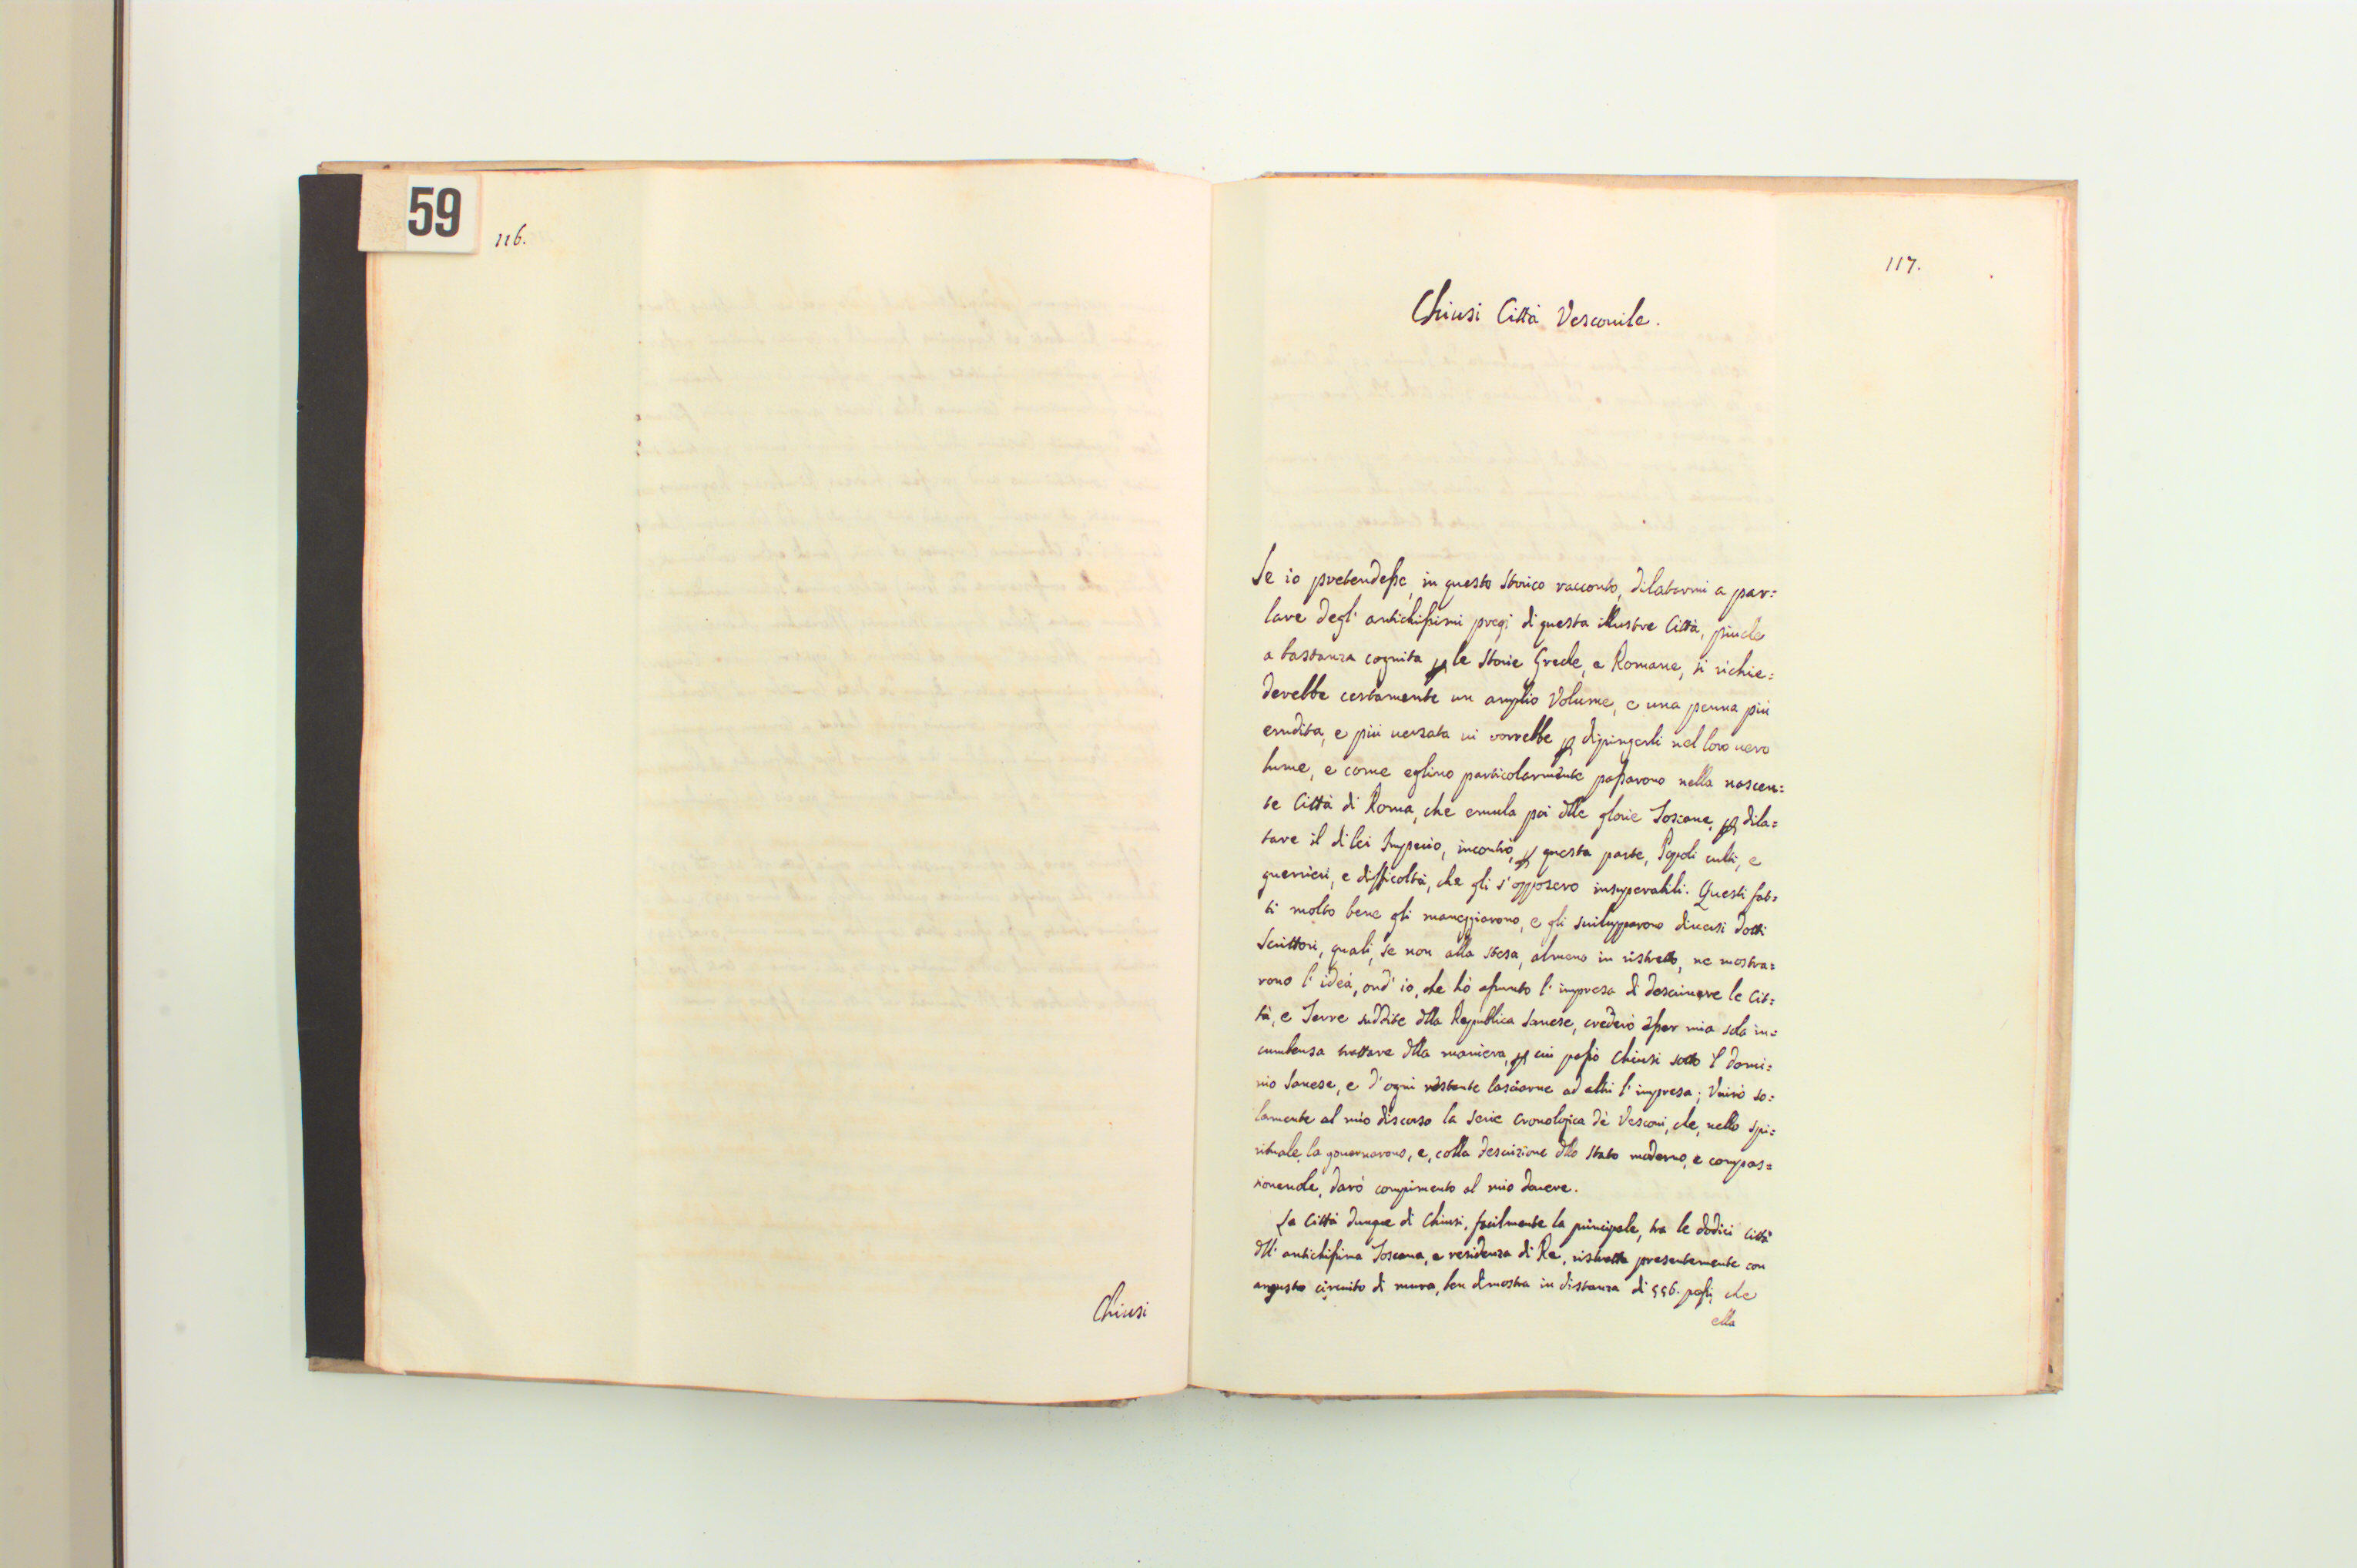 59
116.
Chiusi
117.
Chiusi Città Vescovile.
Se io pretendesse, in questo storico racconto, dilatarmi a par=
lare degl' antichissimi pregi di questa illustre Città, pinche
a bastanza cognita p le Storie Greche, e Romane, si richie=
derebbe certamente un amplio Volume, e una penna più
erudita, e più versata vi vorrebbe p dipingerli nel loro vero
lume, e come eglino particolarmente passarono nella nascen=
te Città di Roma, che emula poi dlle glorie Toscane, p dila=
tare il di lei Imperio, incontrò, p questa parte, Popoli culti, e
guerrieri, e difficoltà, che gli s'opposero insuperabili. Questi fat=
ti molto bene gli maneggiarono, e gli svilupparono diversi dotti
Scrittori, quali, se non alla stesa, almeno in ristretto, ne mostra=
rono l' idea, ond' io, che hò assunto l' impresa di descrivere le Cit=
tà, e Terre suddite dlla Republica Sanese, crederò esser mia sola in=
cumbenza trattare dlla maniera, p cui passò Chiusi sotto l' domi=
nio Sanese, e d'ogni restante lasciarne ad altri l' impresa; Unirò so=
lamente al mio discorso la serie cronologica dè Vescovi, che, nello spi=
rituale, la governarono, e, colla descrizione dllo Stato moderno, e compas=
sionevole, darò compimento al mio dovere.
La Città dunque di Chiusi, facilmente la principale, tra le dodici Città
dll' antichissima Toscana, e residenza di Re, ristretta presentemente con
angusto circuito di mura, ben dimostra in distanza di 556. passi, che
ella